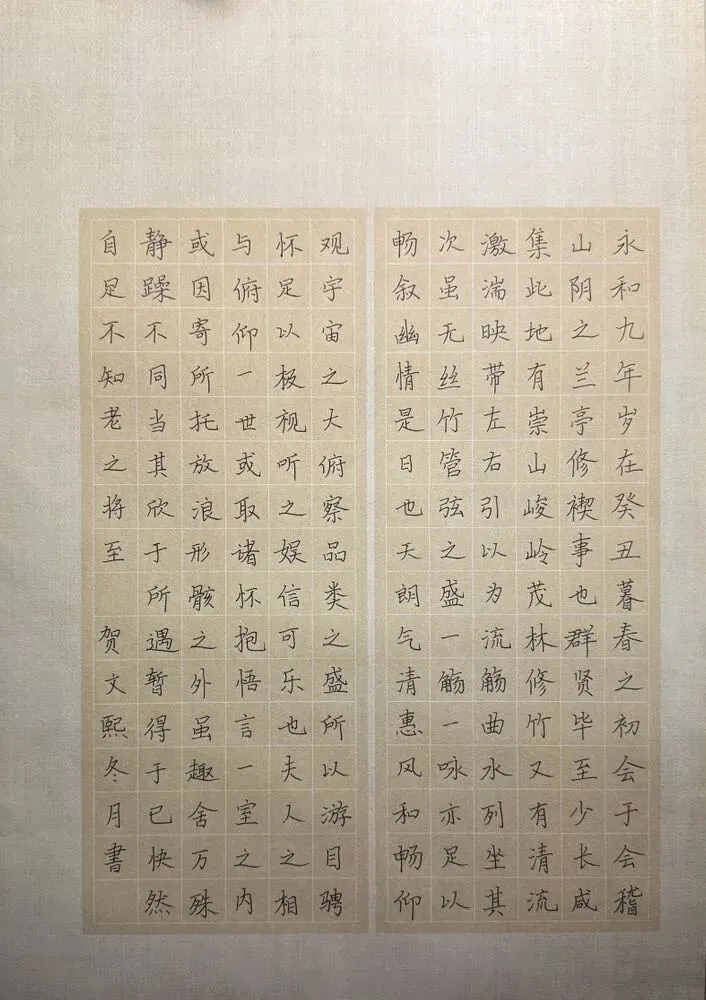 永和九年岁在癸丑暮春之初会于会稽
山阴之兰亭修禊事也群贤毕至少长咸
集此地有崇山峻岭茂林修竹又有清流
激湍映带左右引以为流觞曲水列坐其
次虽无丝竹管弦之盛一觞一咏亦足以
畅叙幽情是日也天朗气清惠风和畅仰
观宇宙之大俯察品类之盛所以游目骋
怀足以极视听之娱信可乐也夫人之相
与俯仰一世或取诸怀抱悟言一室之内
或因寄所托放浪形骸之外虽趣舍万殊
静躁不同当其欣于所遇暂得于已快然
自足不知老之将至 贺文熙冬月書